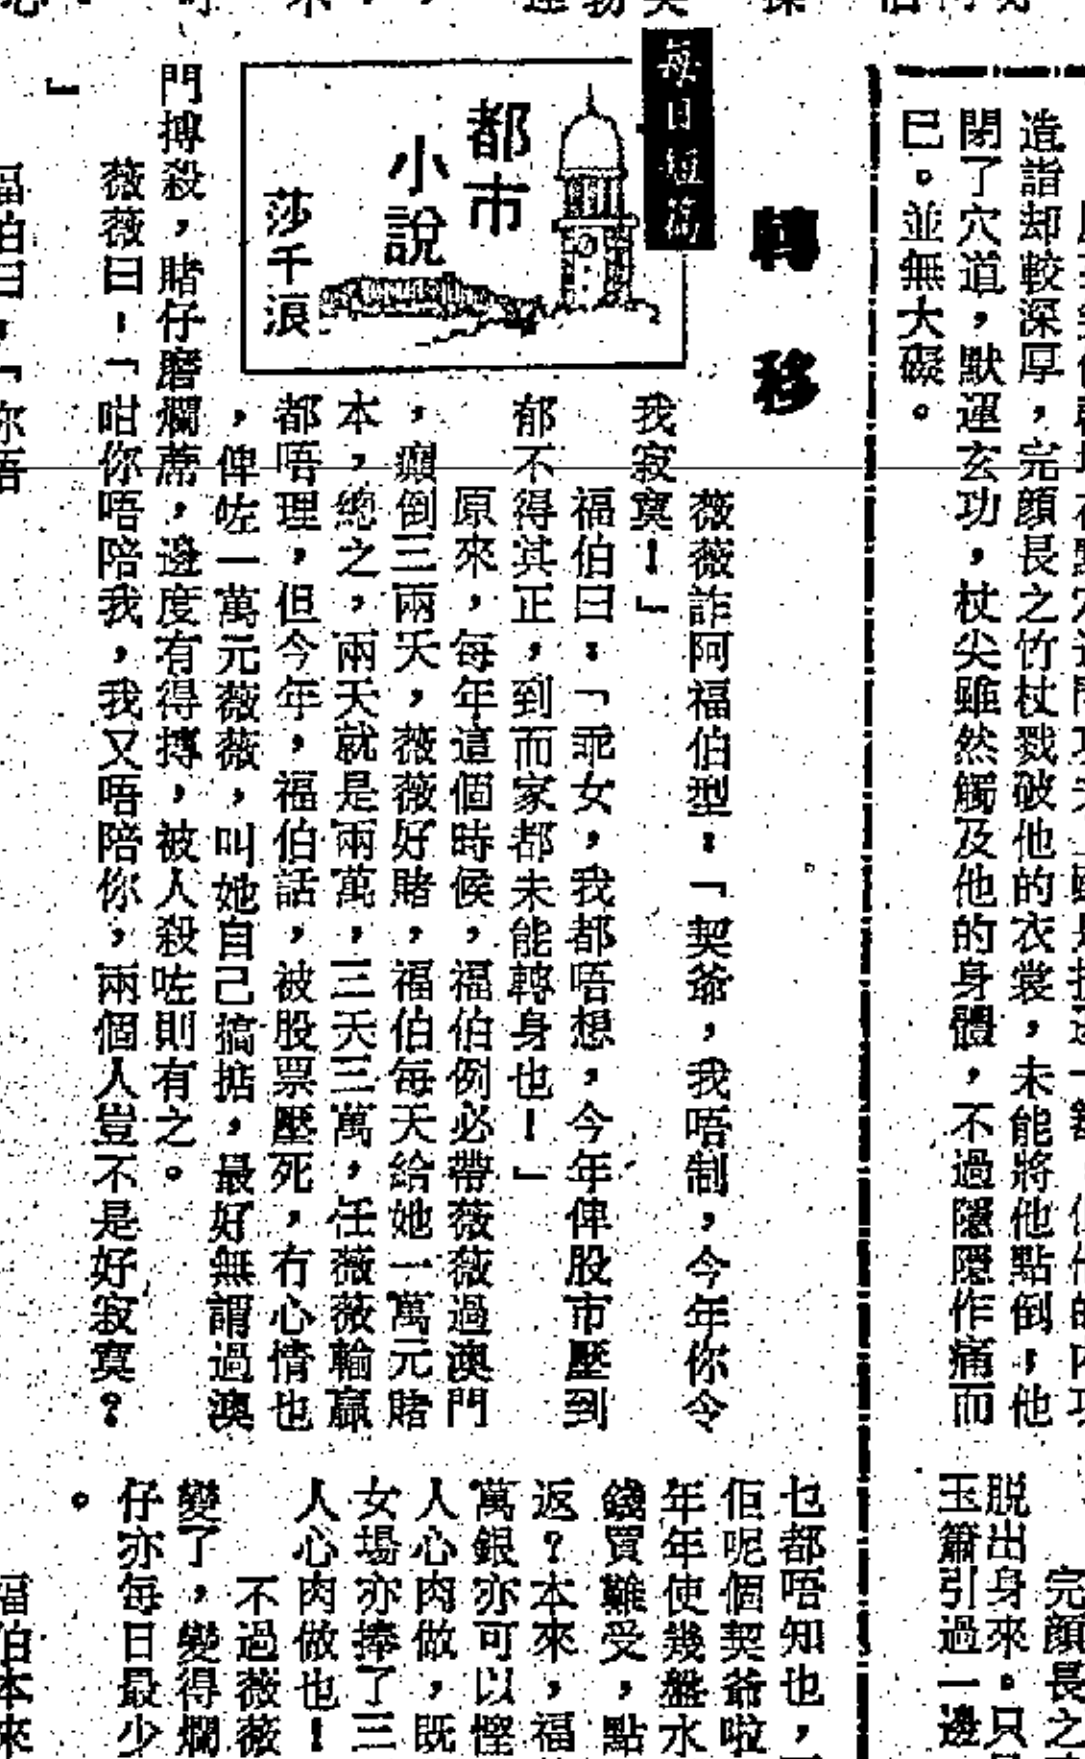 造詣却較深厚，完顏長之竹杖戮破他的衣裳，未能將他點倒；他
閉了穴道，默運玄功，杖尖雖然觸及他的身體，不過隱隱作痛而
已。並無大礙。
完顏長之
脱出身來。只
玉簫引過一邊
每日短篇
轉移
都市
小說
莎千浪
薇薇詐阿福伯型：「契爺，我唔制，今年你令
我寂寞！」
福伯曰：「乖女，我都唔想，今年俾股市壓到
郁不得其正，到而家都未能轉身也！」
原來，每年這個時候，福伯例必帶薇薇過澳門
，癲倒三兩天，薇薇好賭，福伯每天給她一萬元賭
本，總之，兩天就是兩萬，三天三萬，任薇薇輸贏
都唔理，但今年，福伯話，被股票壓死，冇心情也
，俾咗一萬元薇薇，叫她自己搞掂，最好無謂過澳
門搏殺，賭仔磨爛蓆，邊度有得搏，被人殺咗則有之。
薇薇曰：「咁你唔陪我，我又唔陪你，兩個人豈不是好寂寞？
」
福伯曰，「你唔
也都唔知也，
佢呢個契爺啦
年年使幾盤水
錢買難受，點
返？本來，福
萬銀亦可以慳
人心肉做，既
女場亦捧了三
人心肉做也！
不過薇薇
變了，變得爛
仔亦每日最少
。
福伯本來